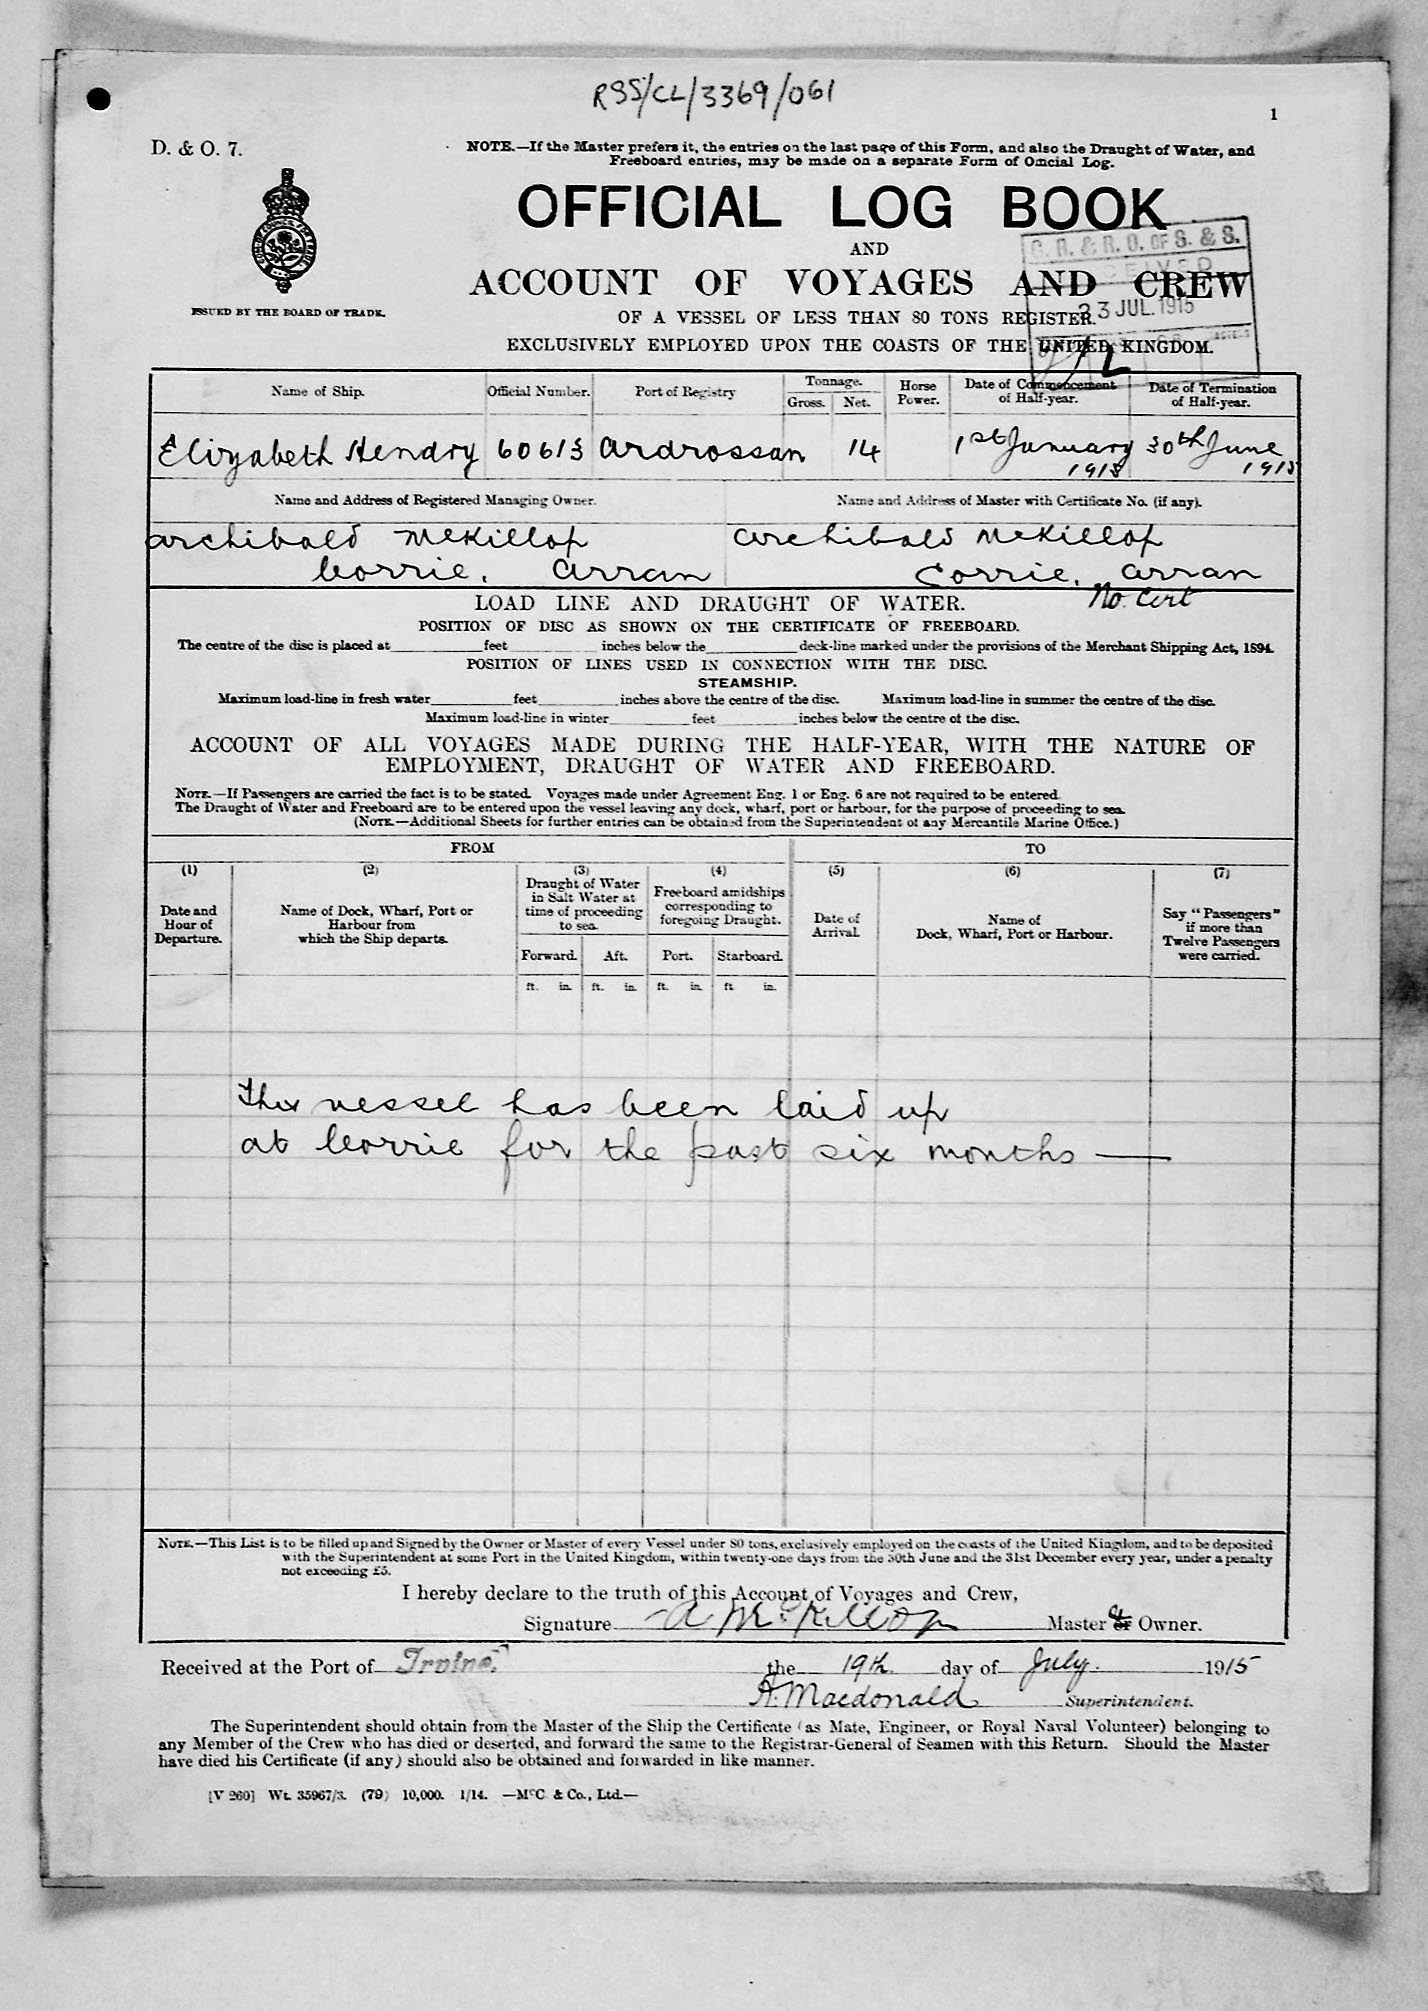 RSS/CL/3369/061
1
D. & O. 7.
NOTE.—If the Master prefers it, the entries on the last page of this Form, and also the Draught of Water, and
Freeboard entries, may be made on a separate Form of Official Log.
OFFICIAL LOG BOOK
AND
ACCOUNT OF VOYAGES AND CREW
OF A VESSEL OF LESS THAN 80 TONS REGISTER.
EXCLUSIVELY EMPLOYED UPON THE COASTS OF THE UNITED KINGDOM.
ISSUED BY THE BOARD OF TRADE.
R. O. OF S. & S.
23 JUL. 1915
Name of Ship. Official Number. Port of Registry Tonnage. Gross. Net. Horse Power. Date of Commencement of Half-year. Date of Termination of Half-year.
Elizabeth Hendry 60613 Ardrossan 14 1st January 1915 30th June 1915
Name and Address of Registered Managing Owner. Name and Address of Master with Certificate No. (if any).
Archibald McKillop Archibald McKillop
Corrie, Arran Corrie, Arran
No. Cert
LOAD LINE AND DRAUGHT OF WATER.
POSITION OF DISC AS SHOWN ON THE CERTIFICATE OF FREEBOARD.
The centre of the disc is placed at feet inches below the deck-line marked under the provisions of the Merchant Shipping Act, 1894.
POSITION OF LINES USED IN CONNECTION WITH THE DISC.
STEAMSHIP.
Maximum load-line in fresh water feet inches above the centre of the disc. Maximum load-line in summer the centre of the disc.
Maximum load-line in winter feet inches below the centre of the disc.
ACCOUNT OF ALL VOYAGES MADE DURING THE HALF-YEAR, WITH THE NATURE OF
EMPLOYMENT, DRAUGHT OF WATER AND FREEBOARD.
NOTE.—If Passengers are carried the fact is to be stated. Voyages made under Agreement Eng. 1 or Eng. 6 are not required to be entered.
The Draught of Water and Freeboard are to be entered upon the vessel leaving any dock, wharf, port or harbour, for the purpose of proceeding to sea.
(NOTE.—Additional Sheets for further entries can be obtained from the Superintendent of any Mercantile Marine Office.)
FROM TO
(1) (2) (3) (4) (5) (6) (7)
Date and Hour of Departure.
Name of Dock, Wharf, Port or Harbour from which the Ship departs.
Draught of Water in Salt Water at time of proceeding to sea.
Freeboard amidships corresponding to foregoing Draught.
Date of Arrival.
Name of Dock, Wharf, Port or Harbour.
Say "Passengers" if more than Twelve Passengers were carried.
Forward. Aft. Port. Starboard.
ft. in. ft. in. ft. in. ft. in.
This vessel has been laid up
at Corrie for the past six months —
NOTE.—This List is to be filled up and Signed by the Owner or Master of every Vessel under 80 tons, exclusively employed on the coasts of the United Kingdom, and to be deposited
with the Superintendent at some Port in the United Kingdom, within twenty-one days from the 30th June and the 31st December every year, under a penalty
not exceeding £5.
I hereby declare to the truth of this Account of Voyages and Crew,
Signature A McKillop Master & or Owner.
Received at the Port of Irvine. the 19th. day of July. 1915
A. Macdonald Superintendent.
The Superintendent should obtain from the Master of the Ship the Certificate (as Mate, Engineer, or Royal Naval Volunteer) belonging to
any Member of the Crew who has died or deserted, and forward the same to the Registrar-General of Seamen with this Return. Should the Master
have died his Certificate (if any) should also be obtained and forwarded in like manner.
[V 260] Wt. 35967/3. (79) 10,000. 1/14. —McC & Co., Ltd.—